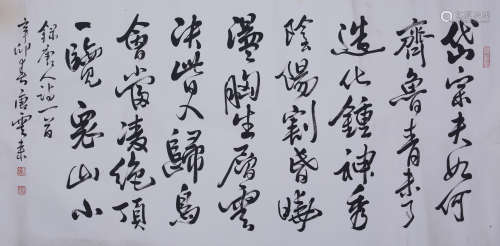 岱宗夫如何
齊魯青未了
造化鍾神秀
陰陽割昏曉
盪胸生層雲
決眥入歸鳥
會當凌絕頂
一覽衆山小
錄唐人詩一首
辛卯春